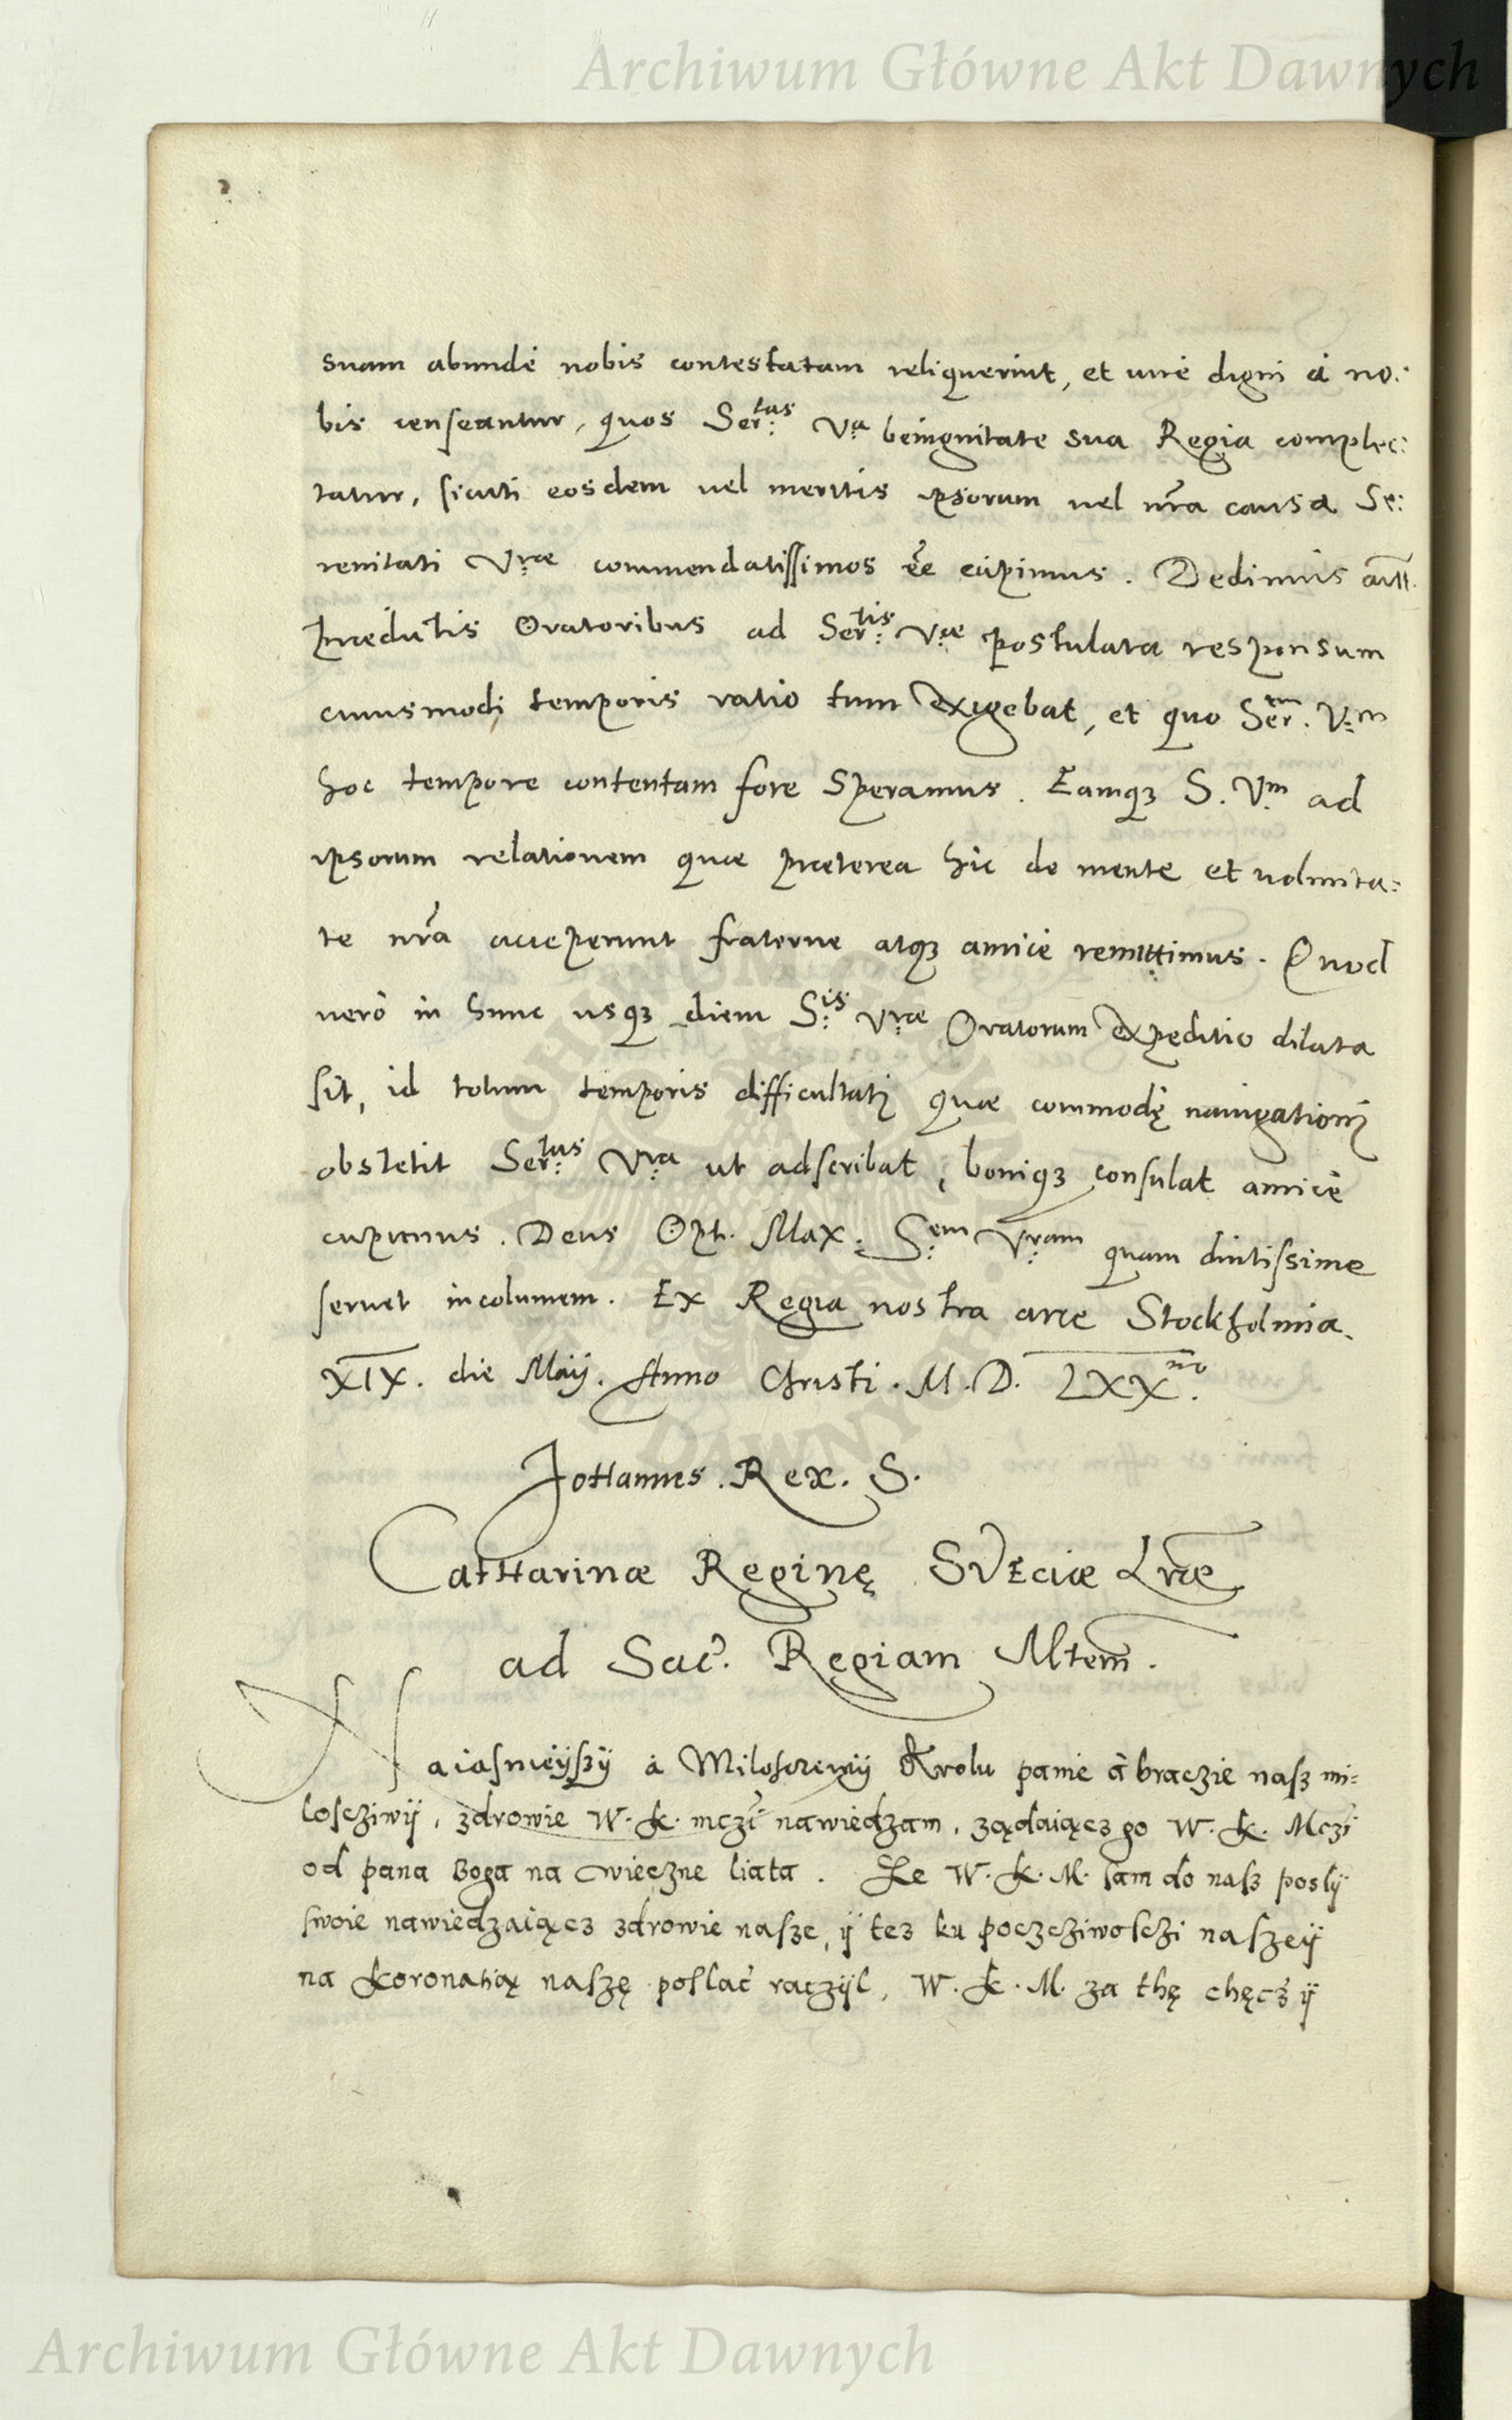 Archiwum Główne Akt Dawnych
suam abundè nobis contestatam reliquerint, et uirè digni à no:
bis censeantur, quos Ser:tas V:a beingnitate sua Regia complec:
tatur, sicuti eosdem uel meritis ipsorum uel nr̃a causa Se:
renitati V:ræ commendatissimos eẽ cupimus. Dedimus
prædictis Oratoribus ad Ser:tis V:æ postulata responsum
cuiusmodi temporis ratio tum exigebat, et quo Ser.tm V:m
hoc tempore contentam fore speramus. Eamqꝫ S. V:m ad
ipsorum relationem quæ præterea hic de mente et uolunta:
te nr̃a acceperunt fraterne atqꝫ amicè remittimus. Quod
uerò in hunc usqꝫ diem S:is V:ræ Oratorum expeditio dilata
sit, id totum temporis difficultati quæ commodę nauigationi
obstetit Ser:tas V:ra ut adscribat, boniqꝫ consulat amicè
cupimus. Deus Opt. Max: S:em V:ram quam diutissime
seruet incolumem. Ex Regia nostra arce Stockholmia.
XIX. die Maij. Anno Christi. M. D. LXX.mo
JoHannes. Rex. S.
CatHarinæ Reginę SVEciæ Lr̃æ
ad Sac̃. Regiam Mtem̃.
Naiasnieijszij à Milosczriwij Krolu panie à braczie nasz mi:
loscziwij, zdrowie W. K. mczi nawiedzam, ządaiącz go W. K. Mczi
od pana Boga na wieczne liata. Ze W. K. M. sam do nasz poslij
swoie nawiedzaiącz zdrowie nasze, ij tez ku poczcziwosczi naszeij
na Koronatią naszę poslać raczijl, W. K. M. za thę chęcz ij
Archiwum Główne Akt Dawnych